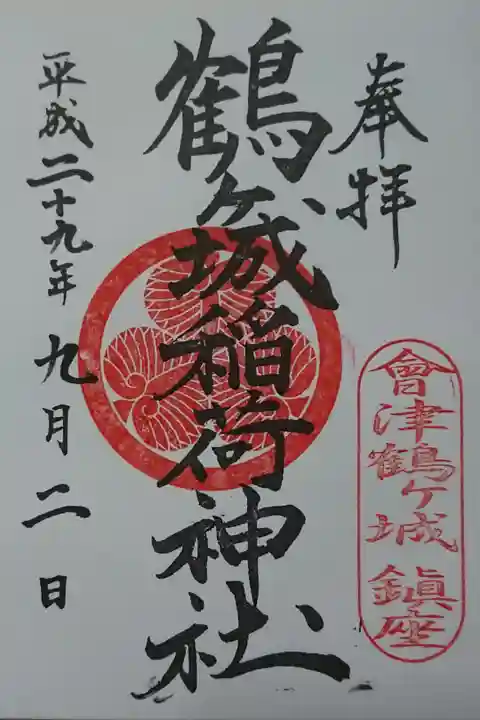 奉拝
會津鶴ヶ城鎮座
鶴ヶ城稲荷神社
平成二十九年九月二日